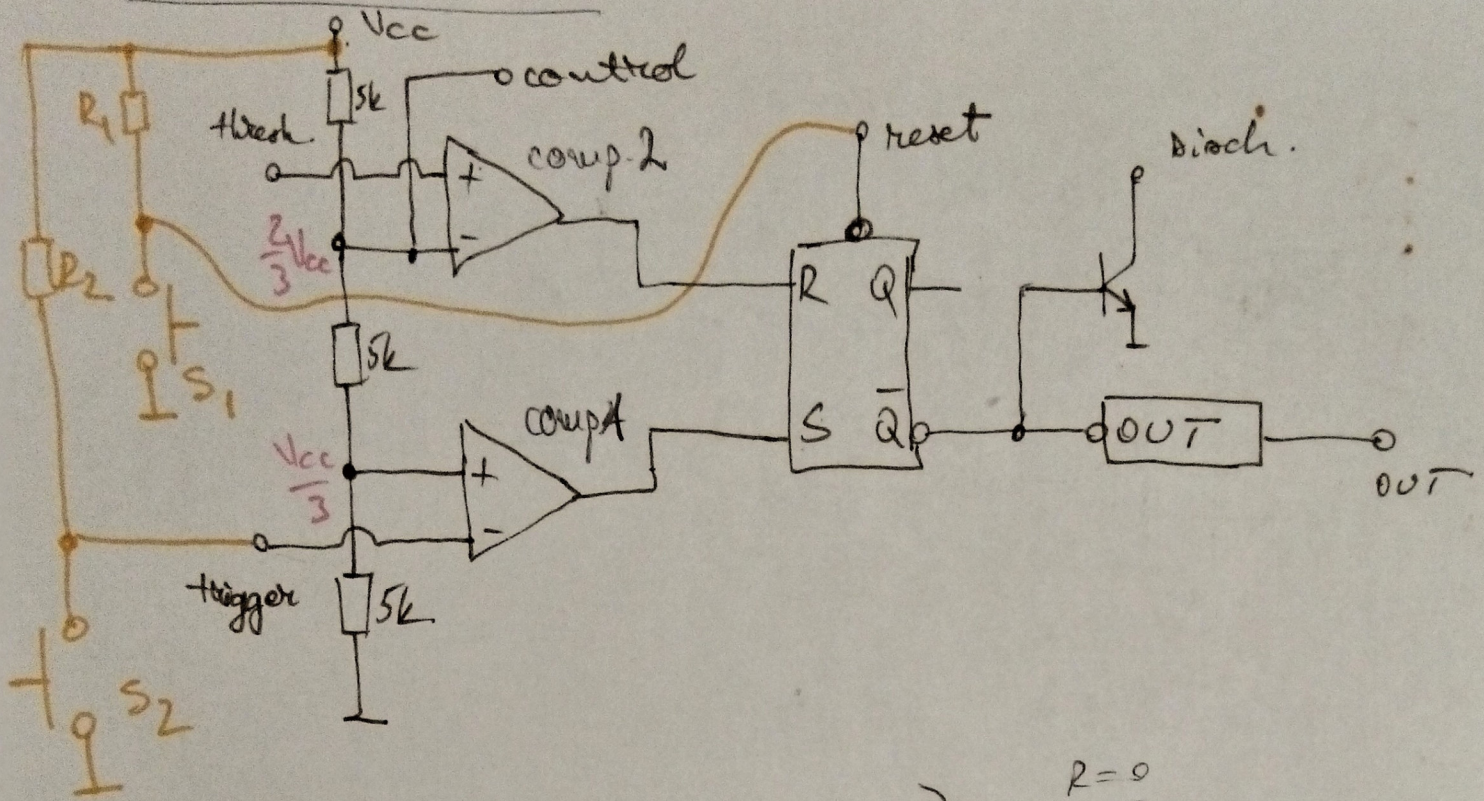 Vcc
5k
control
R1
thresh.
+
comp.2
reset
Disch.
2/3 Vcc
-
R2
R Q
S1
5k
comp1
S Q̅
OUT
OUT
Vcc/3
+
-
trigger
5k
S2
R = 0